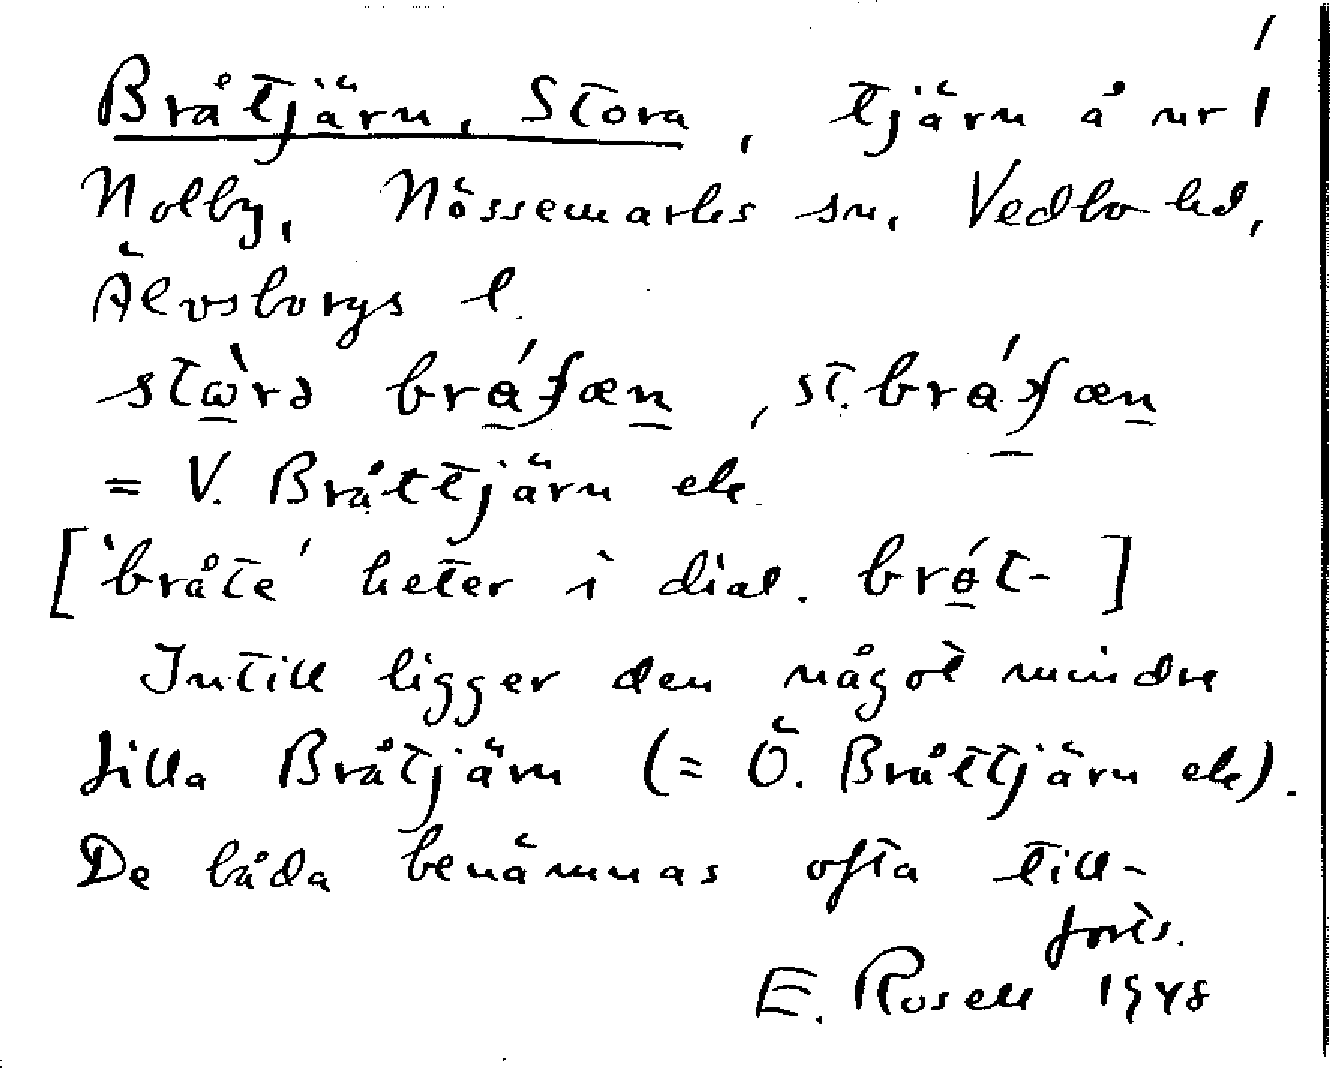 /
Bråtjärn, Stora, tjärn å nr 1
Nolby, Nössemarks sn, Vedbo hd,
Älvsborgs l.
= V. Bråttjärn ek
[ 'bråte' heter i dial. brɵ́t- ]
Intill ligger den något mindre
Lilla Bråtjärn (= Ö. Bråttjärn ek).
De båda benämnas ofta till-
forts.
E. Rosell 1948